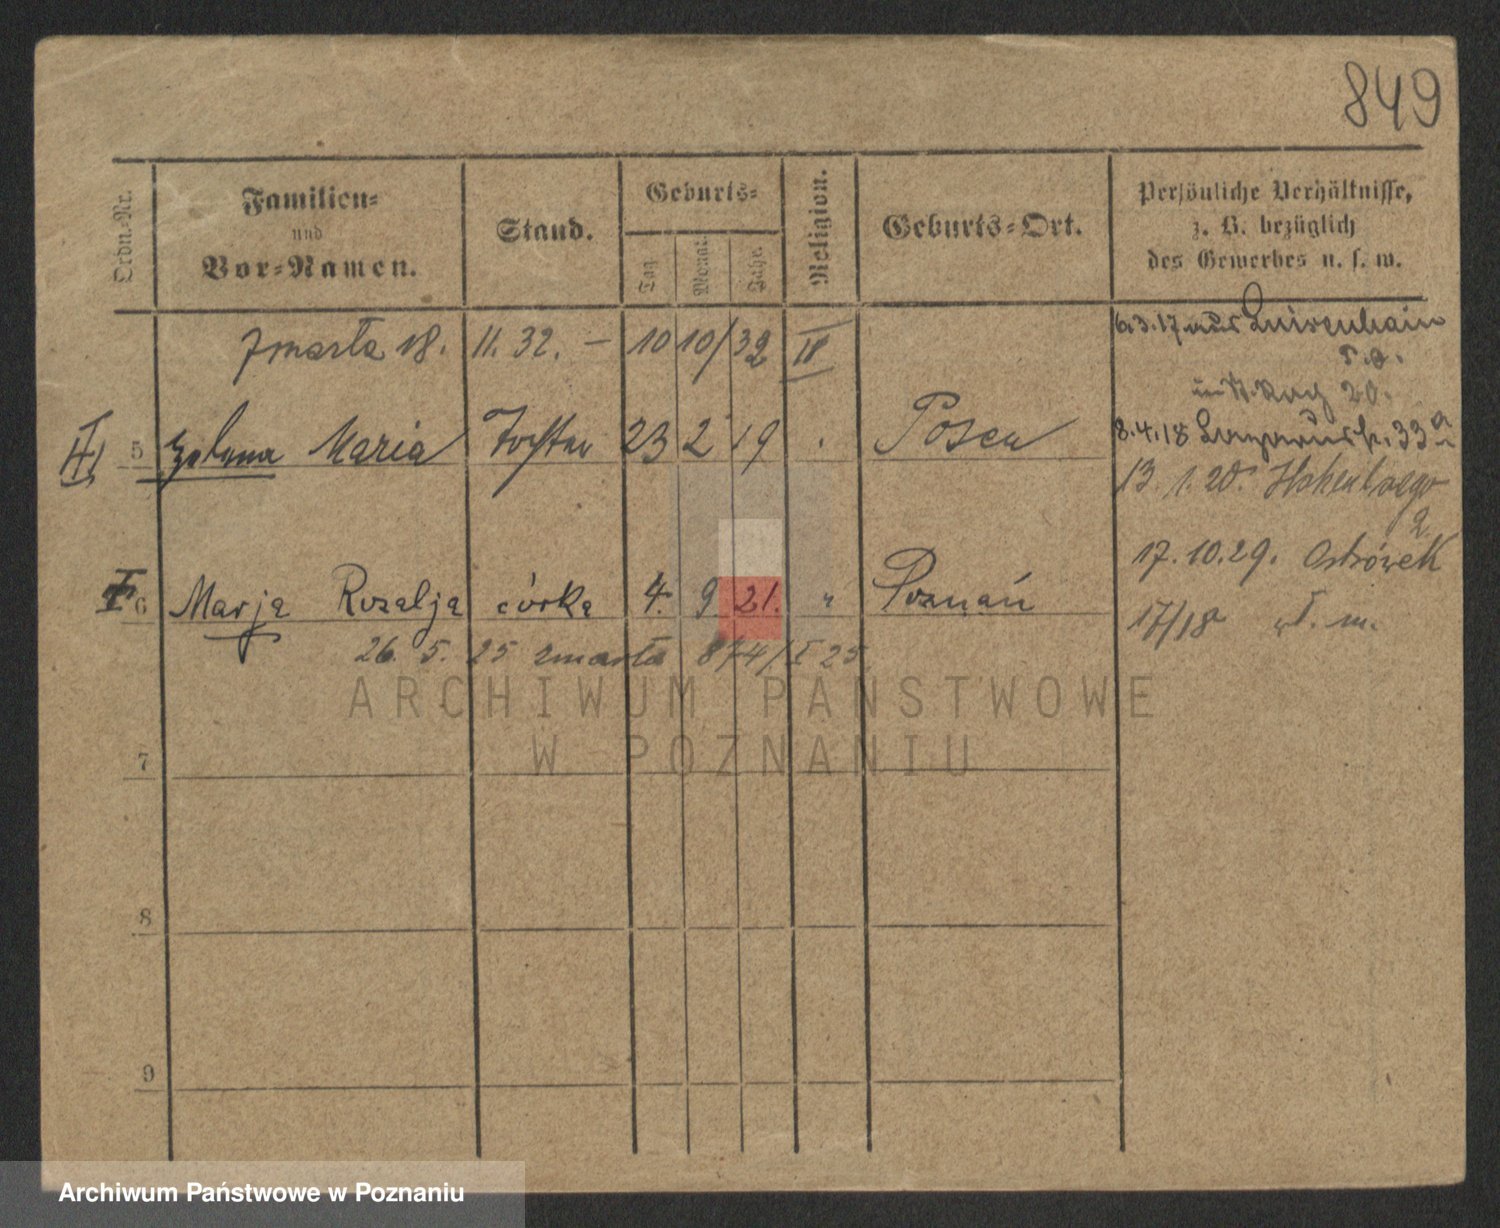 849
Ordn.-Nr.
Familien-
und
Vor-Namen.
Stand.
Geburts-
Tag
Monat.
Jahr.
Religion.
Geburts-Ort.
Persönliche Verhältnisse,
z. B. bezüglich
des Gewerbes u. s. w.
zmarła 18. 11. 32. – 10 10/32 II
6.3.17 aus Luisenhain
8.4.18 33a
5 Helena Maria Tochter 23 2 19 Posen
13. 1. 20.
2
17.10.29. Ostrówek
6 Marja Rozalja córka 4. 9 21. " Poznań
17/18
26. 5. 25 zmarła 874/I 25.
ARCHIWUM PAŃSTWOWE
W POZNANIU
7
8
9
Archiwum Państwowe w Poznaniu